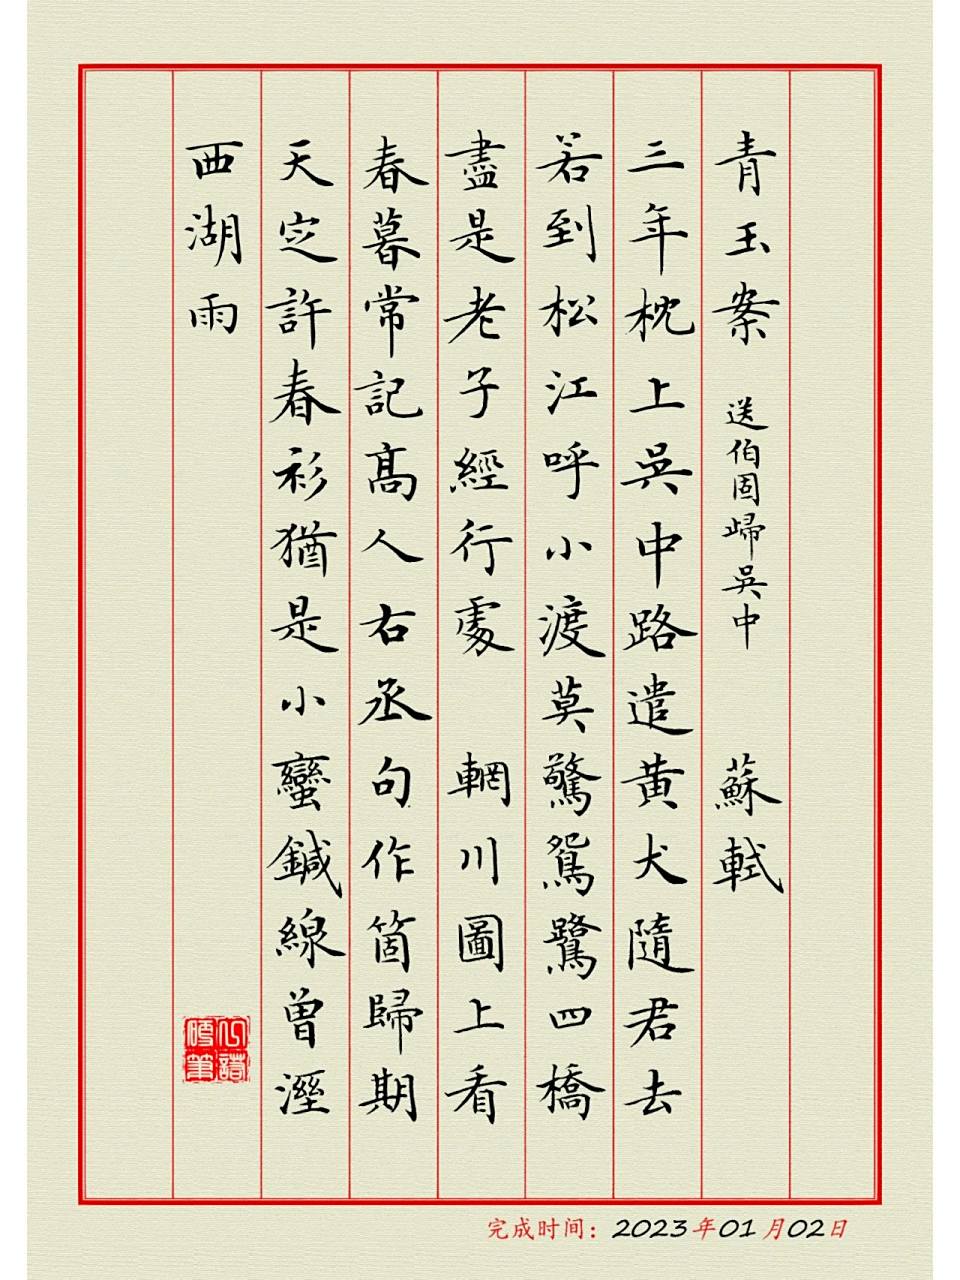 青玉案 送伯固歸吳中 蘇軾
三年枕上吳中路遣黄犬隨君去
若到松江呼小渡莫驚鴛鷺四橋
盡是老子經行處 輞川圖上看
春暮常記高人右丞句作箇歸期
天定許春衫猶是小蠻鍼線曾溼
西湖雨
完成时间：2023年01月02日